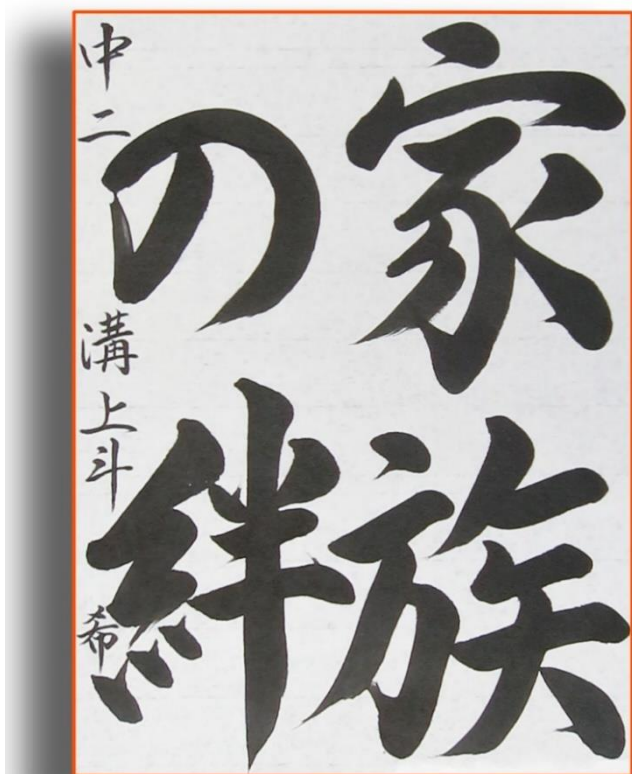 家族
の絆
中二 溝上斗希